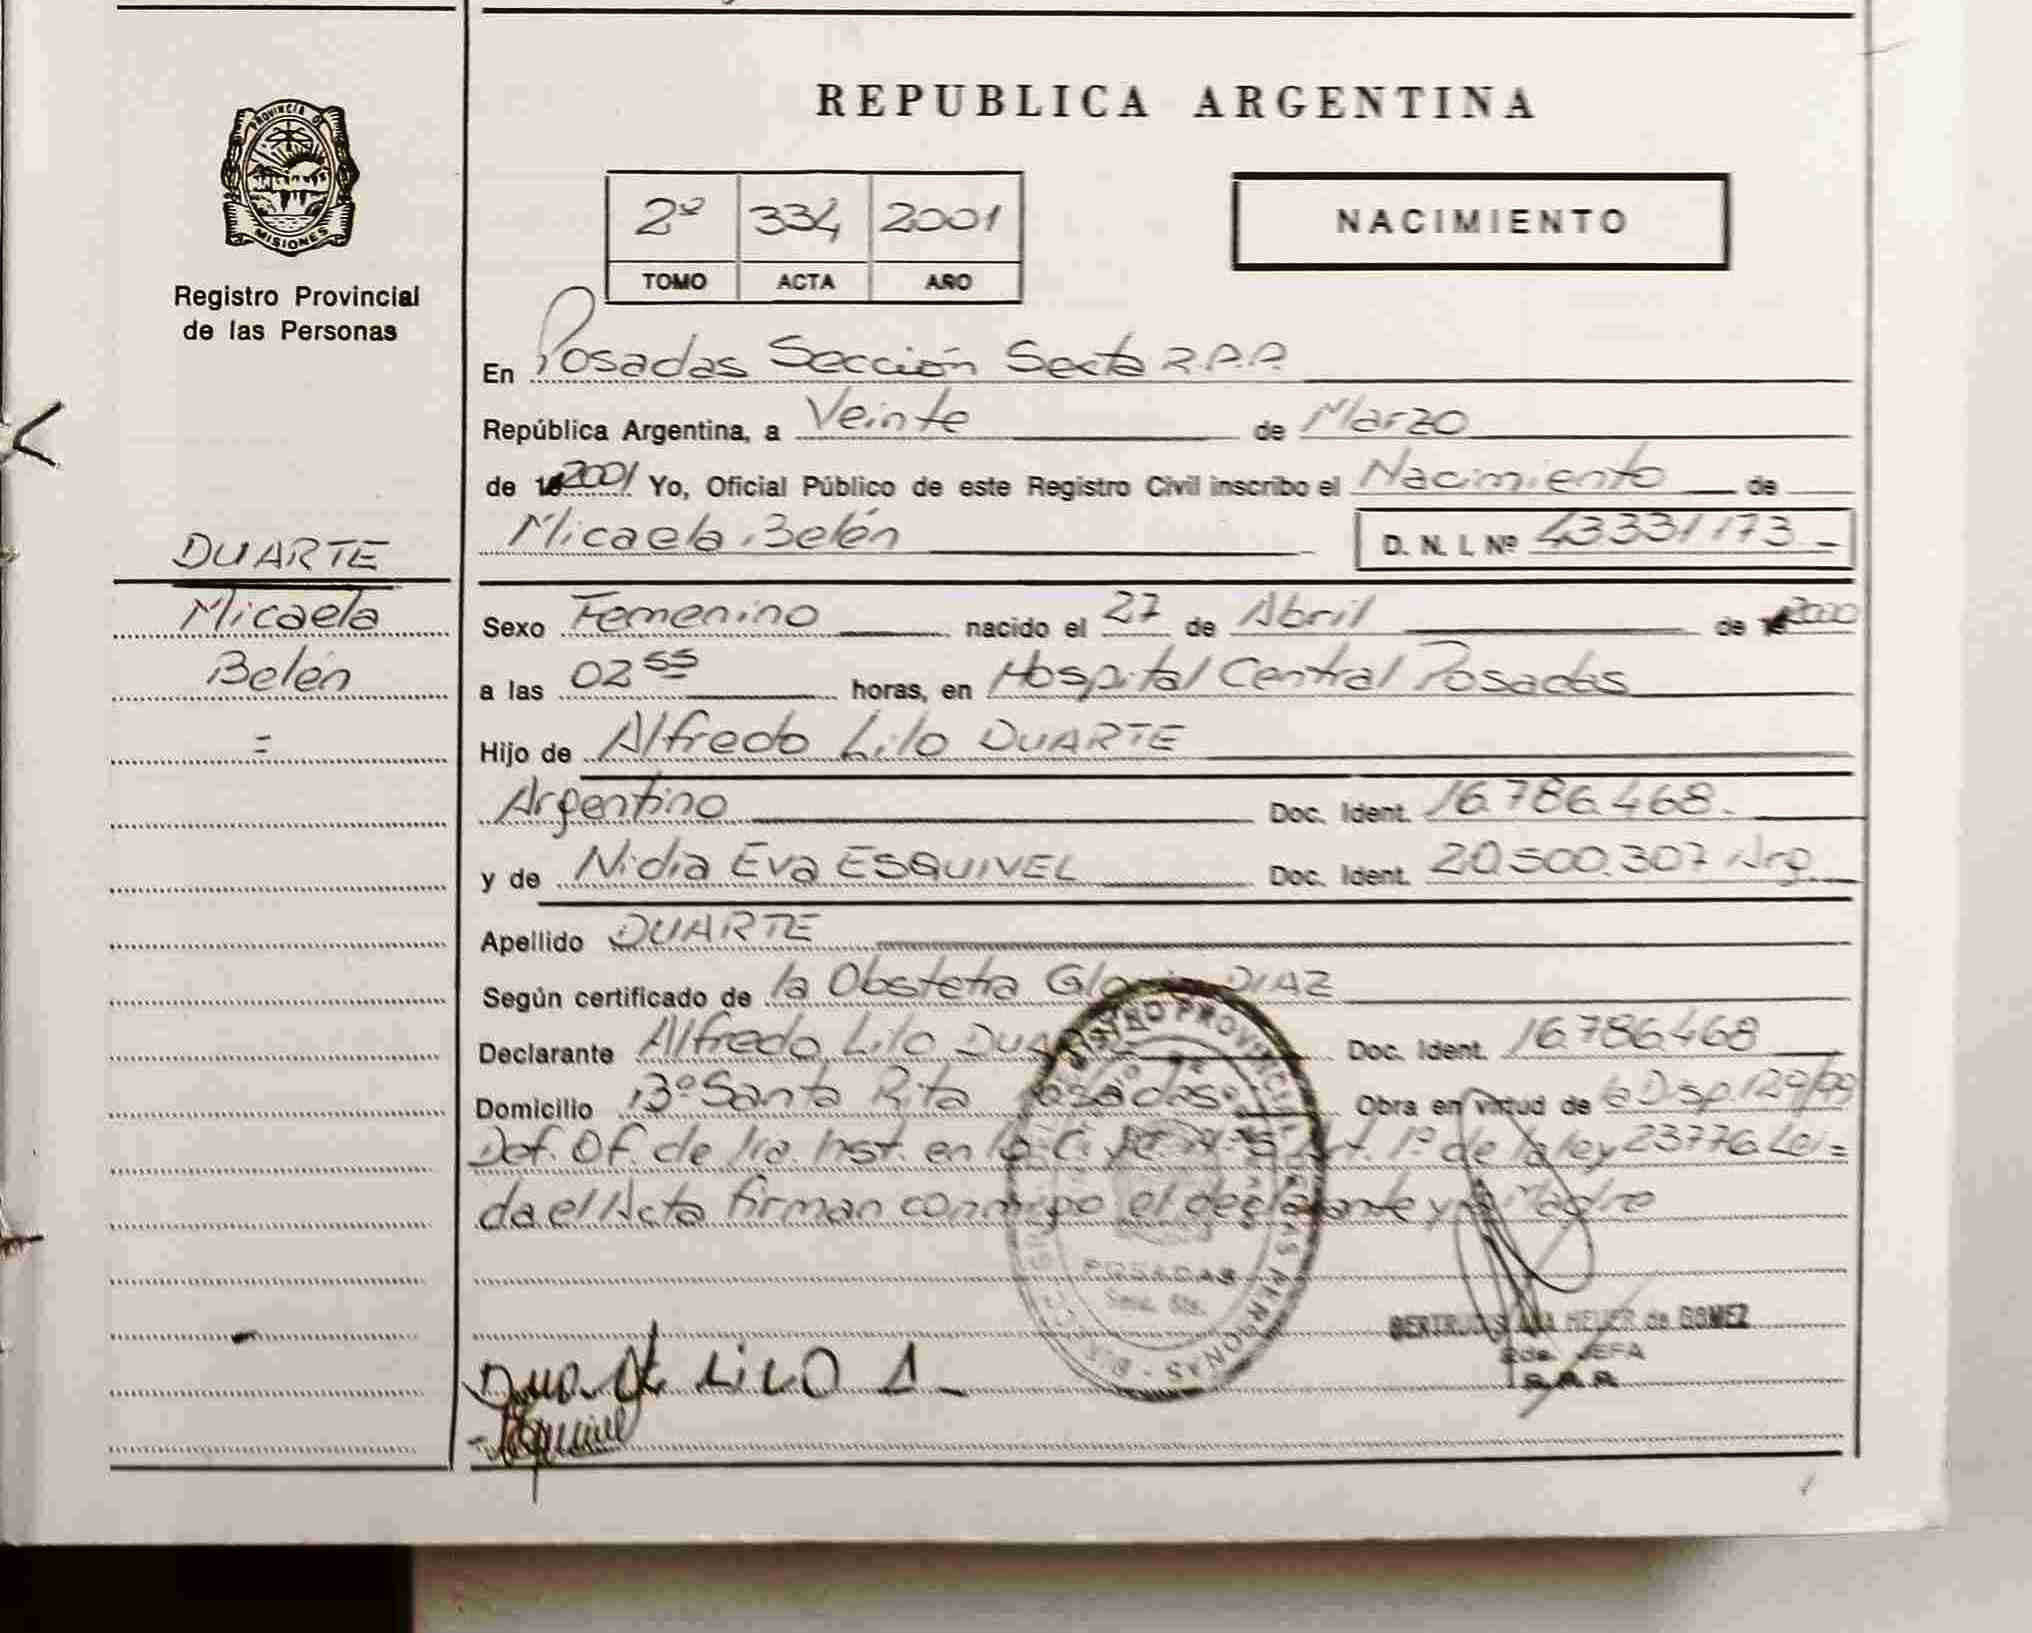 REPUBLICA ARGENTINA
PROVINCIA D
MISIONES
Registro Provincial
de las Personas
2º 334 2001
TOMO ACTA AÑO
NACIMIENTO
En Posadas Sección Secta R.P.P.
República Argentina, a Veinte de Marzo
de 2001 Yo, Oficial Público de este Registro Civil inscribo el Nacimiento de
Micaela Belén D. N. I. Nº 43331173
DUARTE
Micaela
Belén
=
Sexo Femenino nacido el 27 de Abril de 2000
a las 02 55 horas, en Hospital Central Posadas
Hijo de Alfredo Lilo DUARTE
Argentino Doc. Ident. 16.786.468.
y de Nidia Eva ESQUIVEL Doc. Ident. 20.500.307 Arg.
Apellido DUARTE
Según certificado de la Obstetra Gloria DIAZ
Declarante Alfredo Lilo DUARTE Doc. Ident. 16.786.468
Domicilio Bº Santa Rita Posadas. Obra en virtud de la Disp. 129/99
Def. Of. de 1ra. Inst. en lo Art. 1º de la ley 23776. Leí=
da el Acta firman conmigo el declarante y la Madre
REGISTRO PROVINCIAL DE LAS PERSONAS
POSADAS
Secc. 6ta.
GERTRUDIS ANA HEUER de GOMEZ
JEFA
R.P.P.
DUARTE LiLO A
Esquivel